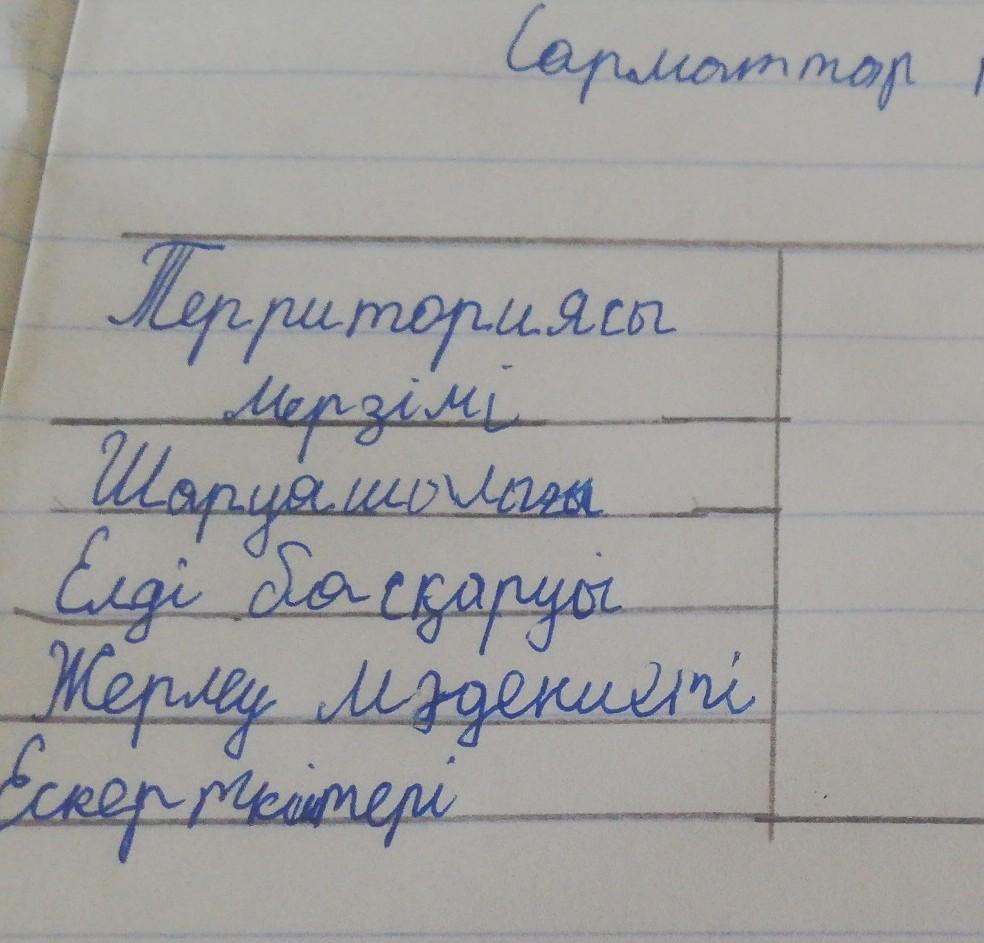 Сарматтар
Территориясы
мерзімі
Шаруашолығы
Елді басқаруы
Жерлеу мәдениеті
Ескерткіштері